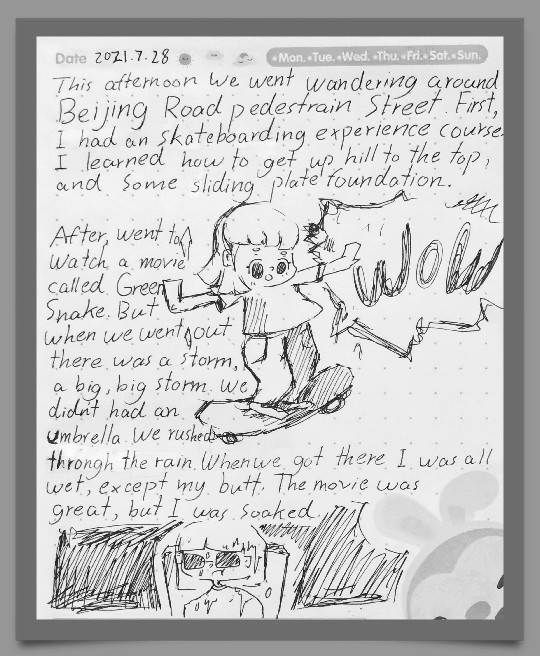 Date 2021.7.28 •Mon. •Tue. •Wed. •Thu. •Fri. •Sat. •Sun.
This afternoon we went wandering around
Beijing Road pedestrain Street. First,
I had an skateboarding experience course.
I learned how to get up hill to the top,
and some sliding plate foundation.
After, went to
watch a movie
called Green
Snake. But
when we went out
there was a storm,
a big, big storm. We
didnt had an
umbrella. We rushed
through the rain. When we got there I was all
wet, except my butt. The movie was
great, but I was soaked.
WOW